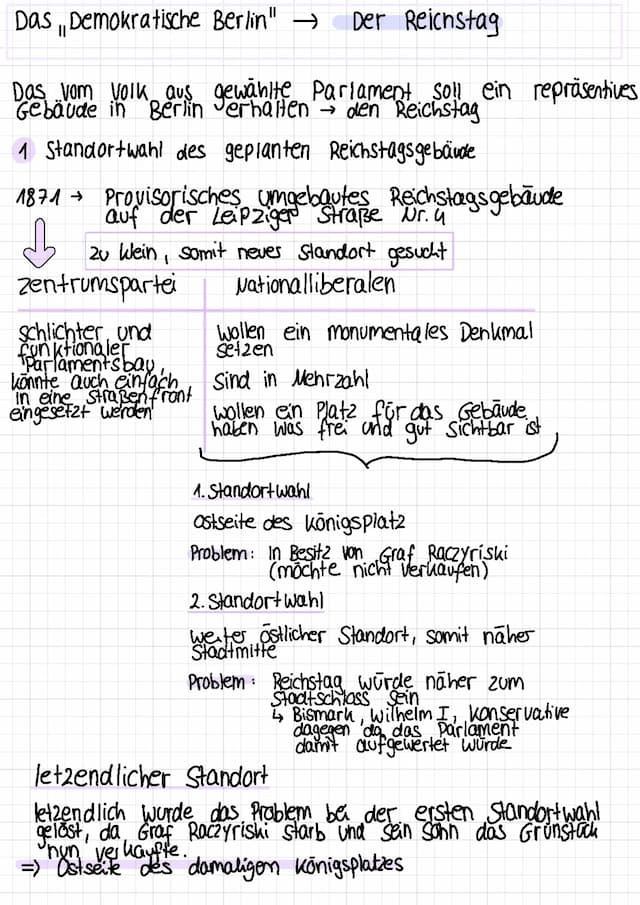 Das „Demokratische Berlin" → Der Reichstag
Das vom Volk aus gewählte Parlament soll ein repräsentives
Gebäude in Berlin erhalten → den Reichstag
1 Standortwahl des geplanten Reichstagsgebäude
1871 → Provisorisches umgebautes Reichstagsgebäude
auf der Leipziger Straße Nr. 4
zu klein, somit neues Standort gesucht
Zentrumspartei
Nationalliberalen
schlichter und
funktionaler
Parlamentsbau,
könnte auch einfach
in eine Straßenfront
eingesetzt werden
wollen ein monumentales Denkmal
setzen
sind in Mehrzahl
wollen ein Platz für das Gebäude
haben was frei und gut sichtbar ist
1. Standortwahl
Ostseite des Königsplatz
Problem: In Besitz von Graf Raczyriski
(möchte nicht verkaufen)
2. Standortwahl
weiter östlicher Standort, somit näher
Stadtmitte
Problem: Reichstag würde näher zum
Stadtschloss sein
↳ Bismark, Wilhelm I, konservative
dagegen da das Parlament
damit aufgewertet würde
letzendlicher Standort
letzendlich wurde das Problem bei der ersten Standortwahl
gelöst, da Graf Raczyriski starb und sein Sohn das Grünstück
nun verkaufte.
=> Ostseite des damaligen Königsplatzes